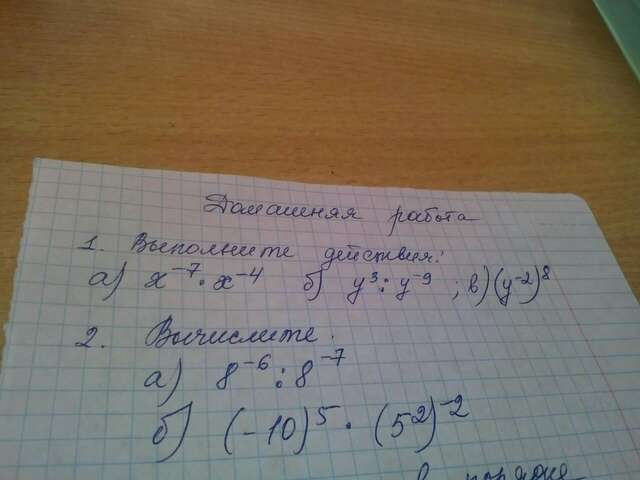 Домашняя работа
1. Выполните действия:
а) x⁻⁷ · x⁻⁴ б) y³ : y⁻⁹ ; в) (y⁻²)⁸
2. Вычислите.
а) 8⁻⁶ : 8⁻⁷
б) (-10)⁵ · (5²)⁻²